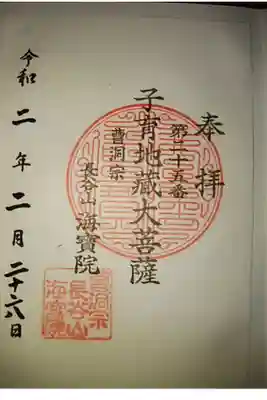 奉拝
第二十五番
子育地蔵大菩薩
曹洞宗
長谷山 海寶院
令和二年二月二十六日
曹洞宗
長谷山
海寶院